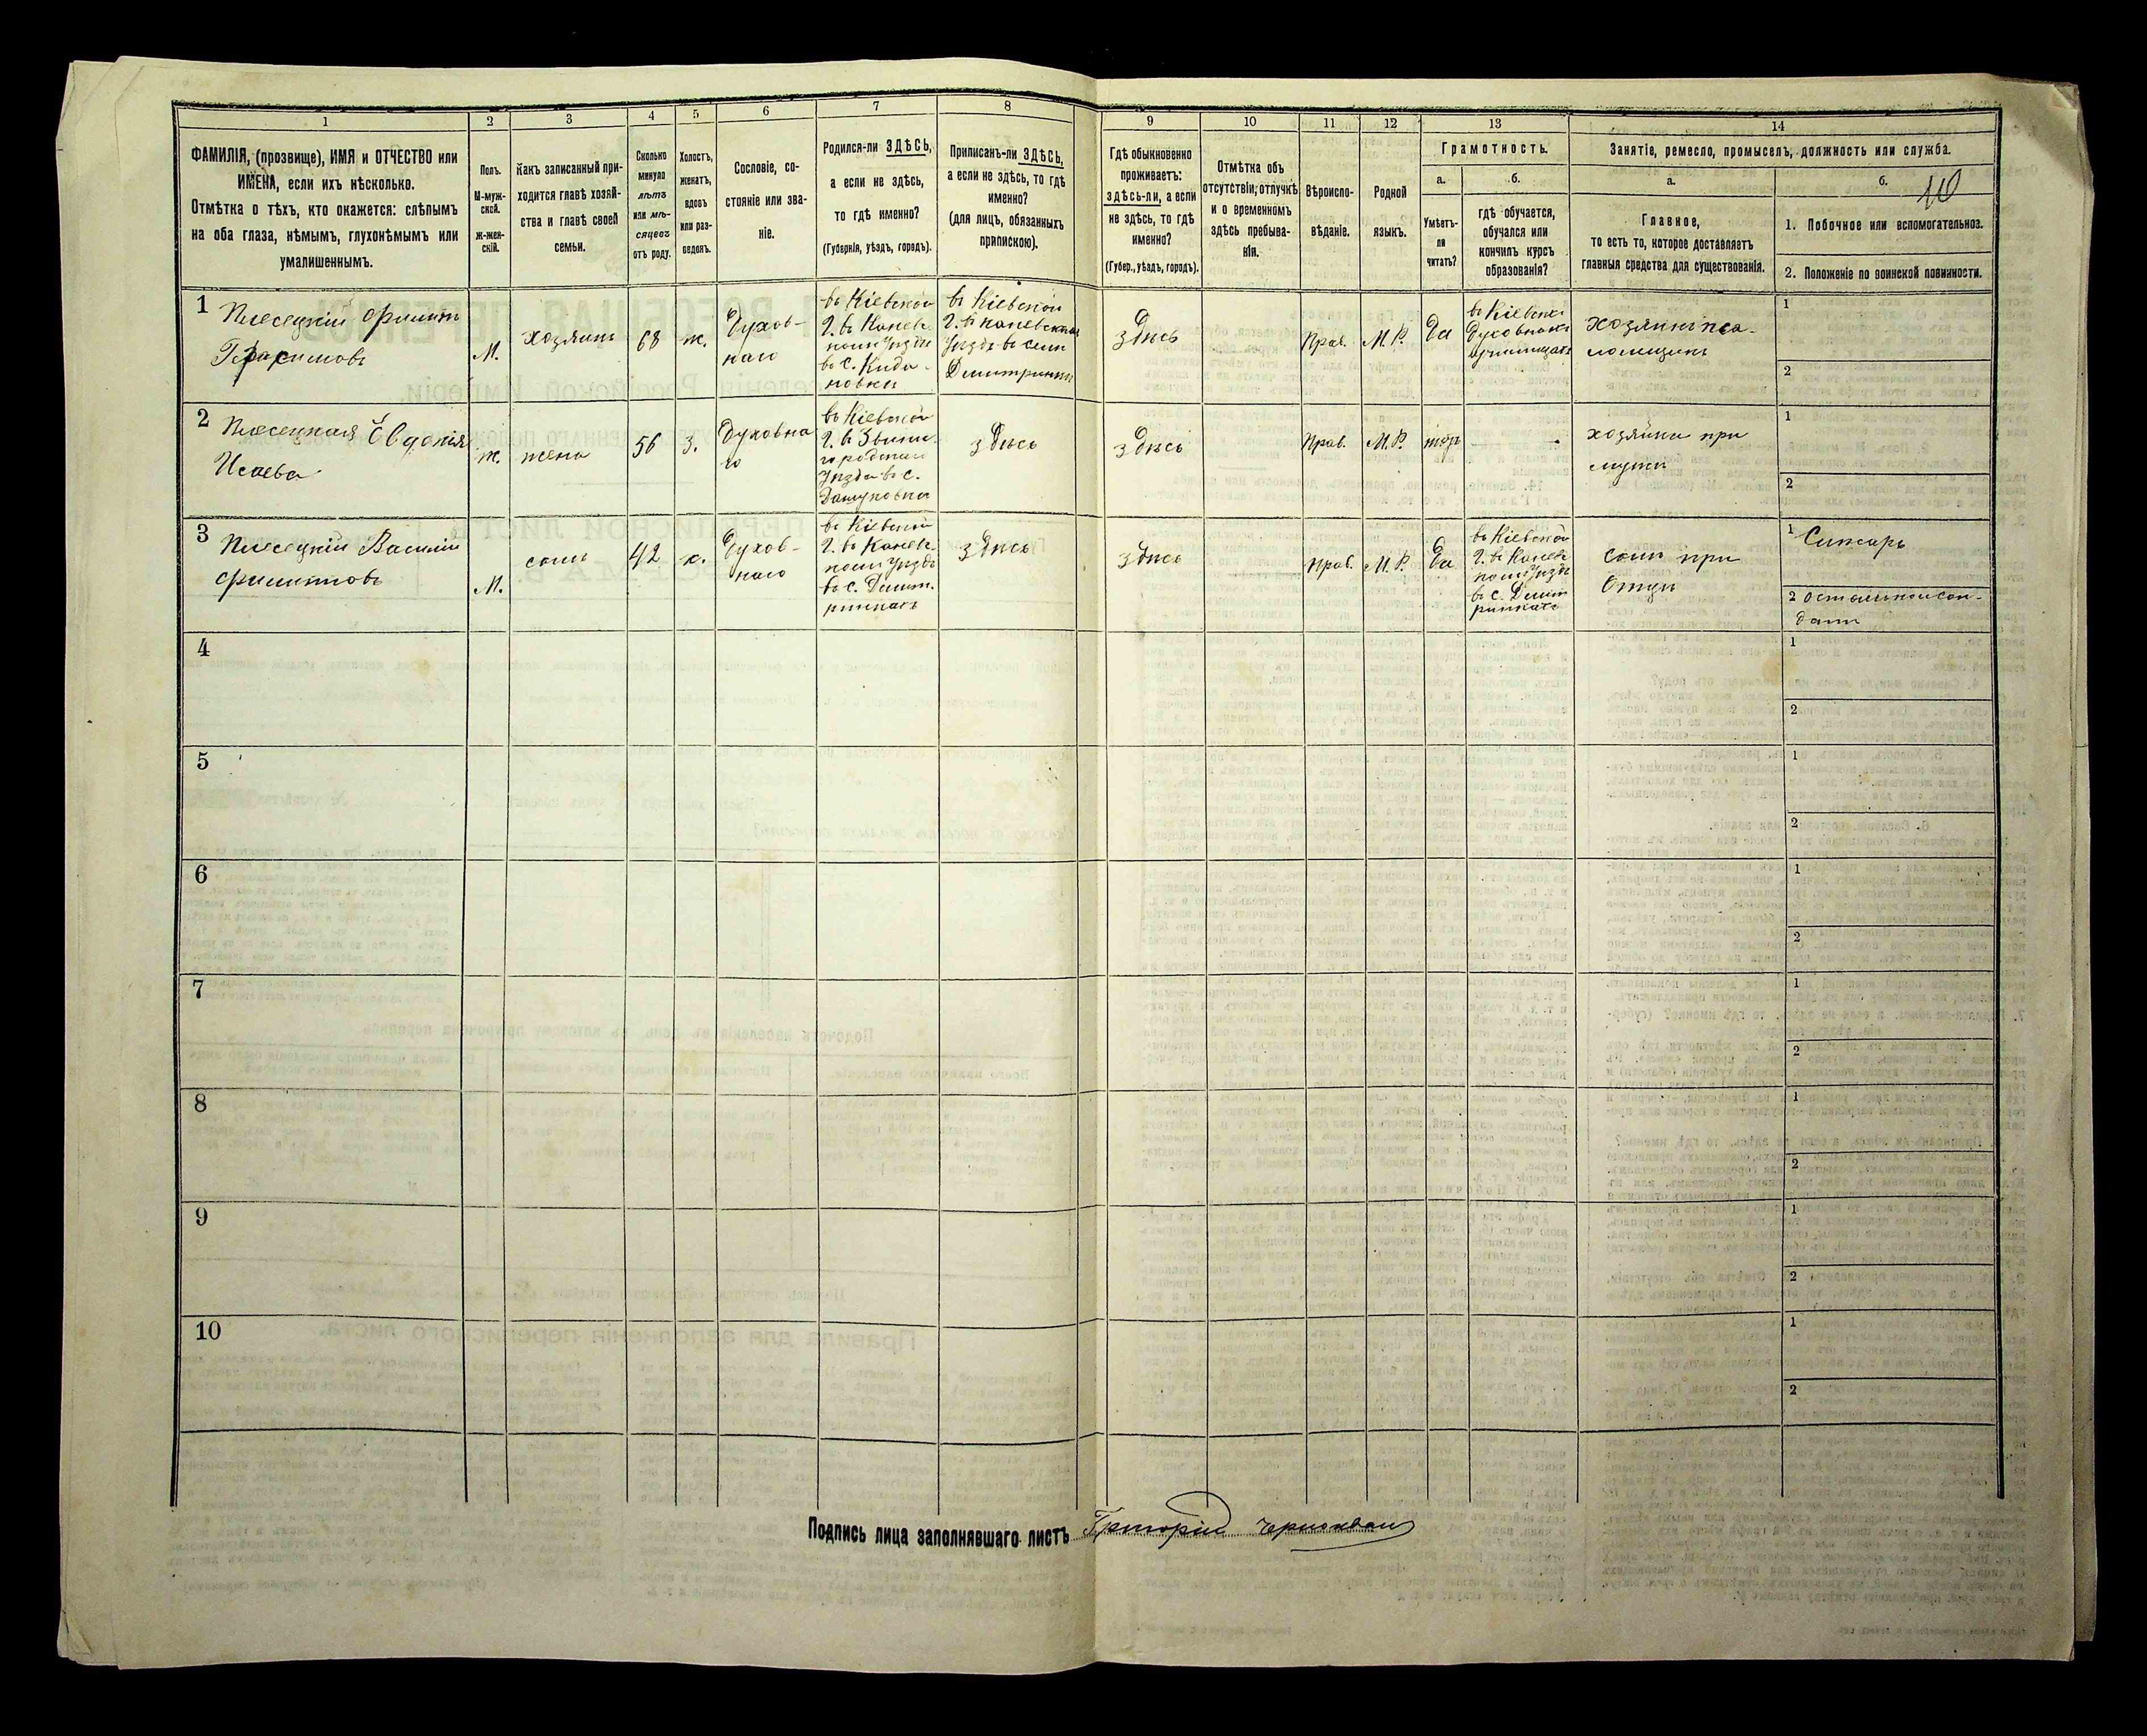 1
2
3
4
5
6
7
8
9
10
11
12
13
14
ФАМИЛІЯ, (прозвище), ИМЯ и ОТЧЕСТВО или
ИМЕНА, если ихъ нѣсколько.
Отмѣтка о тѣхъ, кто окажется: слѣпымъ
на оба глаза, нѣмымъ, глухонѣмымъ или
умалишеннымъ.
Полъ.
М-муж-
ской.
Ж-жен-
скій.
Какъ записанный при-
ходится главѣ хозяй-
ства и главѣ своей
семьи.
Сколько
минуло
лѣтъ
или мѣ-
сяцевъ
отъ роду.
Холостъ,
женатъ,
вдовъ
или раз-
веденъ.
Сословіе, со-
стояніе или зва-
ніе.
Родился-ли ЗДѢСЬ,
а если не здѣсь,
то гдѣ именно?
(Губернія, уѣздъ, городъ).
Приписанъ-ли ЗДѢСЬ,
а если не здѣсь, то гдѣ
именно?
(для лицъ, обязанныхъ
припискою).
Гдѣ обыкновенно
проживаетъ:
здѣсь-ли, а если
не здѣсь, то гдѣ
именно?
(Губер., уѣздъ, городъ).
Отмѣтка объ
отсутствіи, отлучкѣ
и о временномъ
здѣсь пребыва-
ніи.
Вѣроиспо-
вѣданіе.
Родной
языкъ.
Грамотность.
а.
Умѣетъ-
ли
читать?
б.
гдѣ обучается,
обучался или
кончилъ курсъ
образованія?
Занятіе, ремесло, промыселъ, должность или служба.
а.
Главное,
то есть то, которое доставляетъ
главныя средства для существованія.
б.
1. Побочное или вспомогательное.
2. Положеніе по воинской повинности.
1
Плесецкій Филипъ
Герасимовъ
М.
хозяинъ
68
ж.
Духов-
наго
въ Кіевской
Г. въ Канев-
комъ Уѣзди
въ С. Кида-
новки
въ Кіевской
Г. въ Каневскомъ
Уѣзди въ сели
Дмитринки
здѣсь
Прав.
М.Р.
Да
въ Кіевск
Духовномъ
Училищѣ
хозяинъ пса-
ломщикъ
1
2
2
Плесецкая Євдокія
Исаева
ж.
жена
56
з.
Духовна
го
въ Кіевской
Г. въ Звини-
городскомъ
Уѣзди въ с.
здѣсь
здѣсь
Прав.
М.Р.
хозяйка при
мужи
1
2
3
Плесецкій Василій
Филиповъ
М.
сынъ
42
х.
Духов-
наго
въ Кіевской
Г. въ Канев-
комъ Уѣзди
въ с. Дмит-
ринкахъ
здѣсь
здѣсь
Прав.
М.Р.
Да
въ Кіевской
Г. въ Канев
комъ Уѣзди
въ С. Дмит
ринкахъ
сынъ при
Отци
1
2
4
1
2
5
1
2
6
1
2
7
1
2
8
1
2
9
1
2
10
1
2
Подпись лица заполнявшаго листъ Григорій